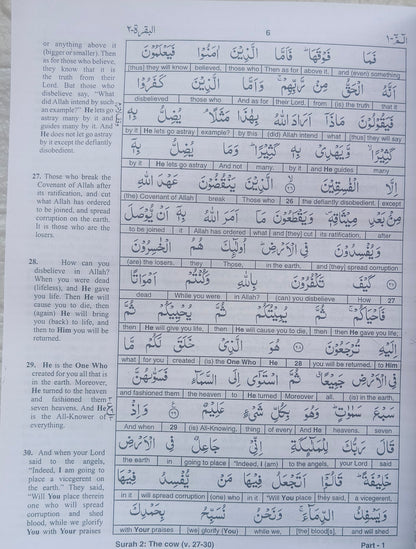 البقرة-٢ 6 الٓمّٓ-١
or anything above it
(bigger or smaller). Then
as for those who believe,
they know that it is
the truth from their
Lord. But those who
disbelieve say, "What
did Allah intend by such
an example?" He lets go
astray many by it and
guides many by it. And
He does not let go astray
by it except the defiantly
disobedient.
27. Those who break the
Covenant of Allah after
its ratification, and cut
what Allah has ordered
to be joined, and spread
corruption on the earth.
It is those who are the
losers.
28. How can you
disbelieve in Allah?
When you were dead
(lifeless), and He gave
you life. Then He will
cause you to die, then
(again) He will bring
you (back) to life, and
then to Him you will be
returned.
29. He is the One Who
created for you all that is
in the earth. Moreover,
He turned to the heaven
and fashioned them
seven heavens. And He
is the All-Knower of
everything.
30. And when your Lord
said to the angels,
"Indeed, I am going to
place a vicegerent on
the earth." They said,
"Will You place therein
one who will spread
corruption and shed
blood, while we glorify
You with Your praises
فَمَا فَوْقَهَا ۗ فَاَمَّا الَّذِيْنَ اٰمَنُوْا فَيَعْلَمُوْنَ
[thus] they will know | believed, | those who | Then as for | above it. | and (even) something
اَنَّهُ الْحَقُّ مِنْ رَّبِّهِمْ ۚ وَاَمَّا الَّذِيْنَ كَفَرُوْا
disbelieved | those who | And as for | their Lord. | from | (is) the truth | that it
فَيَقُوْلُوْنَ مَاذَآ اَرَادَ اللّٰهُ بِهٰذَا مَثَلًا ۘ يُضِلُّ بِهٖ
by it | He lets go astray | example? | by this | (did) Allah intend | what | [thus] they will say
كَثِيْرًا ۙ وَّيَهْدِيْ بِهٖ كَثِيْرًا ۗ وَمَا يُضِلُّ بِهٖٓ
by it | He lets go astray | And not | many. | by it | and He guides | many
اِلَّا الْفٰسِقِيْنَ ٢٦ الَّذِيْنَ يَنْقُضُوْنَ عَهْدَ اللّٰهِ
(the) Covenant of Allah | break | Those who | 26 | the defiantly disobedient, | except
مِنْۢ بَعْدِ مِيْثَاقِهٖ ۖ وَيَقْطَعُوْنَ مَآ اَمَرَ اللّٰهُ بِهٖٓ اَنْ يُّوْصَلَ
to be joined | it | Allah has ordered | what | and [they] cut | its ratification, | after
وَيُفْسِدُوْنَ فِى الْاَرْضِ ۗ اُولٰٓئِكَ هُمُ الْخٰسِرُوْنَ
(are) the losers. | they | Those, | in the earth. | and [they] spread corruption
٢٧ كَيْفَ تَكْفُرُوْنَ بِاللّٰهِ وَكُنْتُمْ اَمْوَاتًا
dead | While you were | in Allah? | (can) you disbelieve | How | 27
فَاَحْيَاكُمْ ۚ ثُمَّ يُمِيْتُكُمْ ثُمَّ يُحْيِيْكُمْ ثُمَّ
then | He will give you life, | then | He will cause you to die, | then | then He gave you life;
اِلَيْهِ تُرْجَعُوْنَ ٢٨ هُوَ الَّذِيْ خَلَقَ لَكُمْ مَّا
what | for you | created | (is) the One Who | He | 28 | you will be returned. | to Him
فِى الْاَرْضِ جَمِيْعًا ۗ ثُمَّ اسْتَوٰٓى اِلَى السَّمَآءِ فَسَوّٰىهُنَّ
and fashioned them | the heaven | to | He turned | Moreover | all. | (is) in the earth,
سَبْعَ سَمٰوٰتٍ ۗ وَهُوَ بِكُلِّ شَيْءٍ عَلِيْمٌ ٢٩ وَاِذْ
And when | 29 | (is) All-Knowing. | thing | of every | And He | heavens. | seven
قَالَ رَبُّكَ لِلْمَلٰٓئِكَةِ اِنِّيْ جَاعِلٌ فِى الْاَرْضِ
the earth | in | going to place | "Indeed, I (am) | to the angels, | your Lord | said
خَلِيْفَةً ۗ قَالُوْٓا اَتَجْعَلُ فِيْهَا مَنْ يُّفْسِدُ فِيْهَا
in it | will spread corruption | (one) who | in it | "Will You place | they said, | a vicegerent,
وَيَسْفِكُ الدِّمَآءَ ۚ وَنَحْنُ نُسَبِّحُ بِحَمْدِكَ
with Your praises | [we] glorify (You) | while we, | [the] blood[s], | and will shed
Surah 2: The cow (v. 27-30) Part - 1